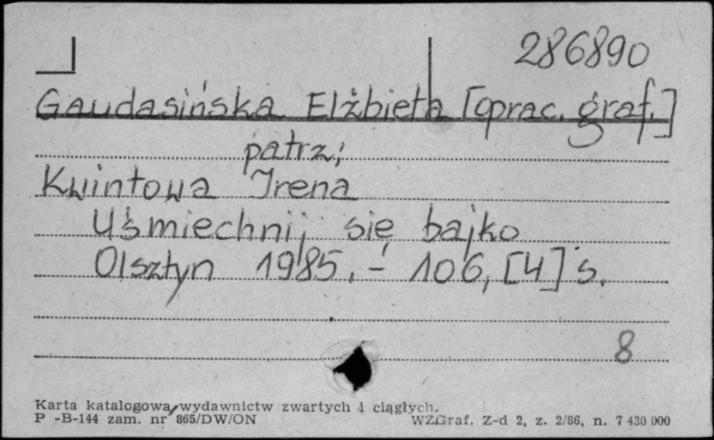 286890
Gaudasińska Elżbieta [oprac. graf.]
patrz:
Kwintowa Irena
Uśmiechnij się bajko
Olsztyn 1985. - 106, [4] s.
8
Karta katalogowa wydawnictw zwartych i ciągłych.
P -B-144 zam. nr 865/DW/ON WZGraf. Z-d 2, z. 2/86, n. 7 430 000